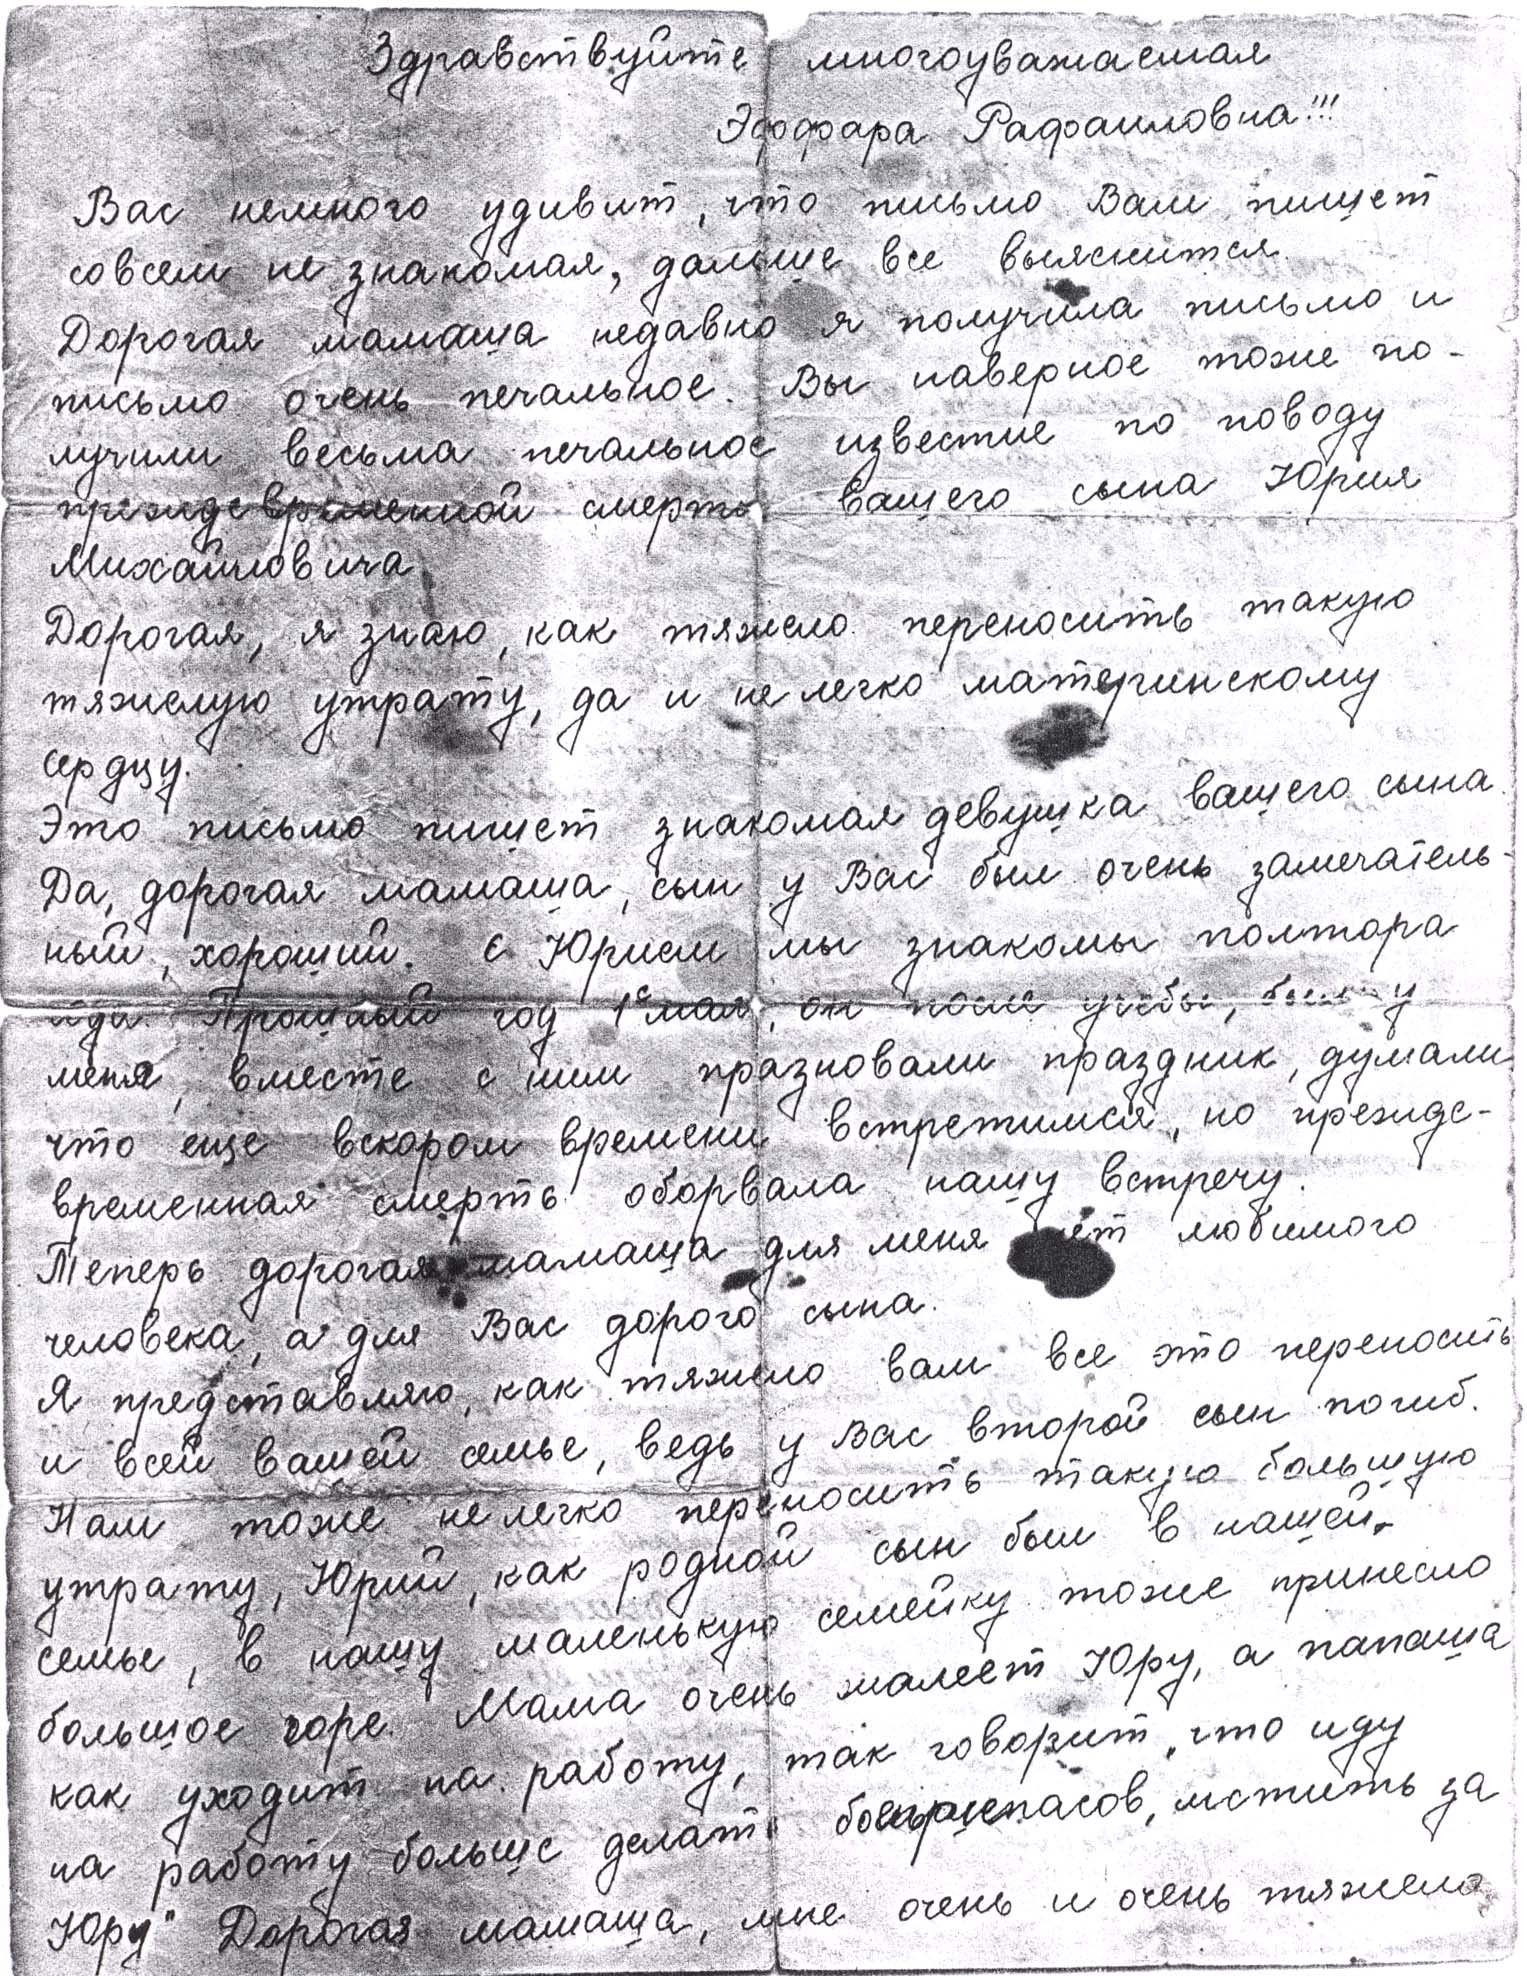 Здравствуйте многоуважаемая
Эсфара Рафаиловна!!!
Вас немного удивит, что письмо Вам пишет
совсем не знакомая, дальше все выяснится.
Дорогая мамаша недавно я получила письмо и
письмо очень печальное. Вы наверное тоже по-
лучили весьма печальное известие по поводу
преждевременной смерти вашего сына Юрия
Михайловича
Дорогая, я знаю, как тяжело переносить такую
тяжелую утрату, да и не легко материнскому
сердцу.
Это письмо пишет знакомая девушка вашего сына.
Да, дорогая мамаша, сын у Вас был очень замечатель-
ный, хороший. С Юрием мы знакомы полтора
года. Прошлый год 1е мая, он после учебы, был у
меня, вместе с ним празновали праздник, думали
что еще вскором времени встретимся, но прежде-
временная смерть оборвала нашу встречу.
Теперь дорогая мамаша для меня нет любимого
человека, а для Вас дорого сына.
Я представляю, как тяжело вам все это переносить
и всей вашей семье, ведь у Вас второй сын погиб.
Нам тоже не легко переносить такую большую
утрату, Юрий, как родной сын был в нашей
семье, в нашу маленькую семейку тоже принесло
большое горе. Мама очень жалеет Юру, а папаша
как уходит на работу, так говорит "что иду
на работу больше делать боеприпасов, мстить за
Юру" Дорогая мамаша, мне очень и очень тяжело